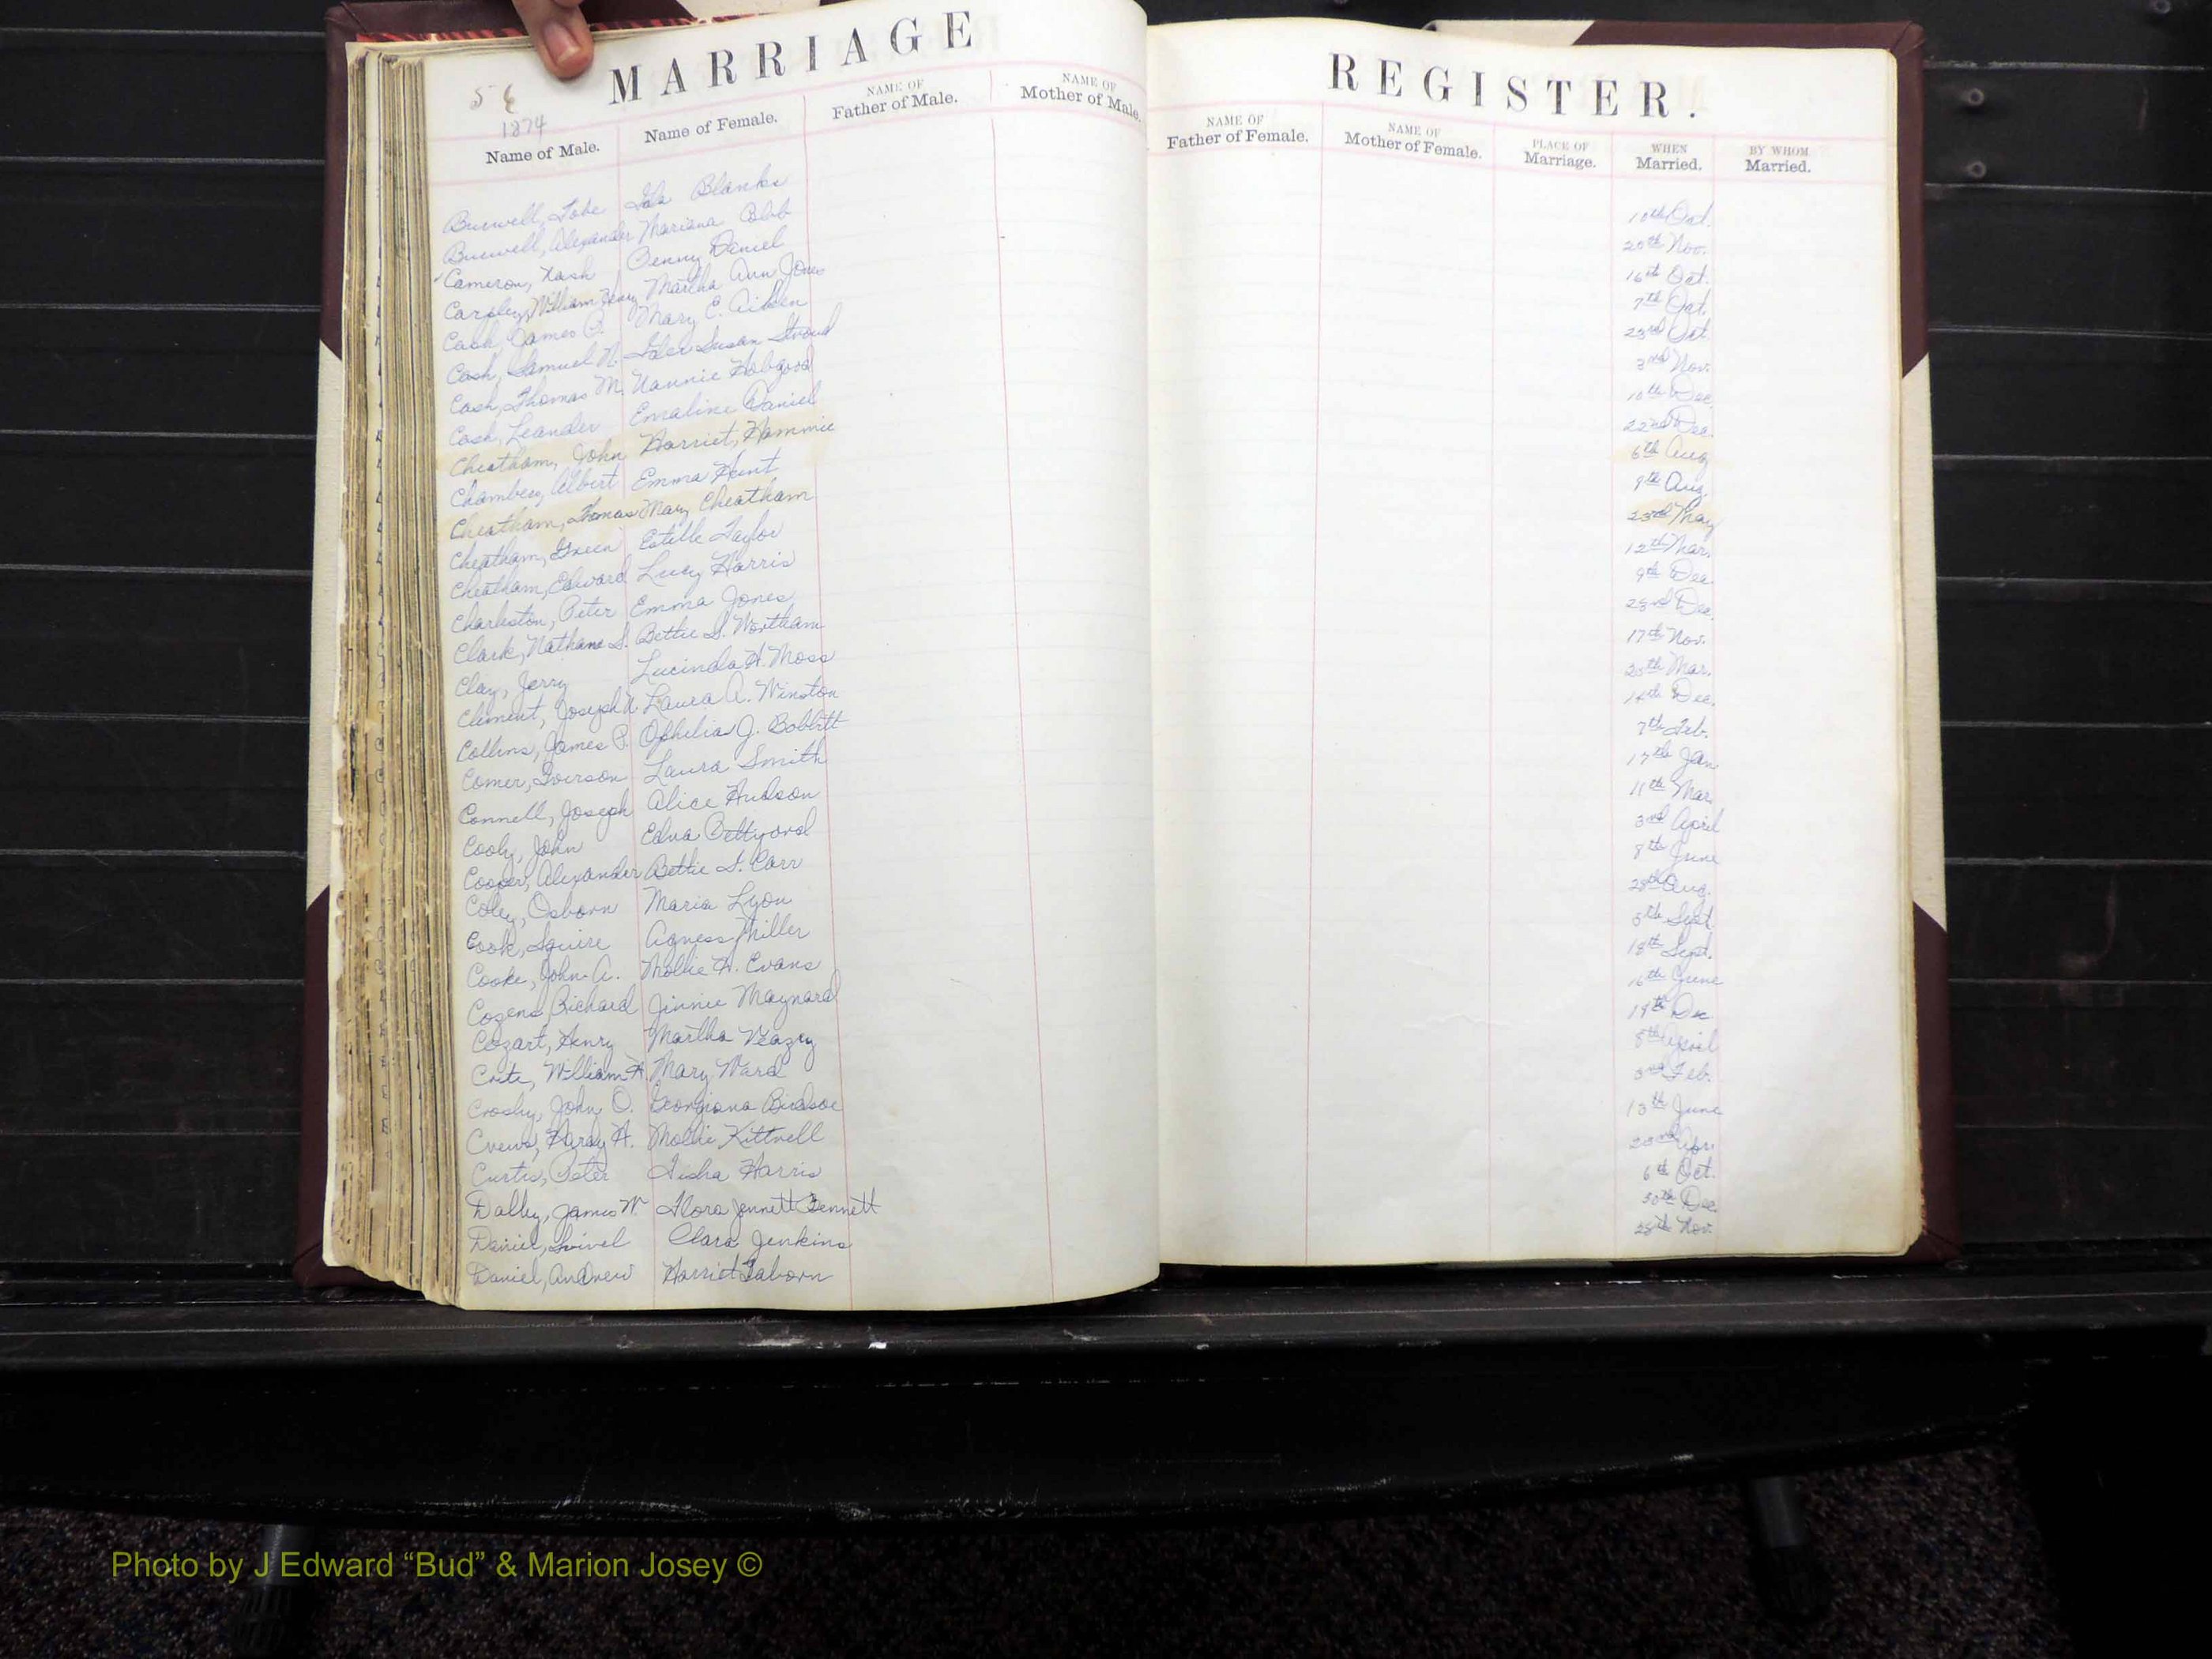 MARRIAGE REGISTER.
56
1874
Name of Male. Name of Female. NAME OF Father of Male. NAME OF Mother of Male. NAME OF Father of Female. NAME OF Mother of Female. PLACE OF Marriage. WHEN Married. BY WHOM Married.
Burwell, Tobe Ida Blanks 10th Oct.
Burwell, Alexander Mariana Bibb 20th Nov.
Cameron, Nash Penny Daniel 16th Oct.
William Henry Martha Ann Jones 7th Oct.
Cash, James P. Mary E. Aiken 23rd Oct.
Cash, Samuel N. Susan Stroud 3rd Nov.
Cash, Thomas M. Nannie Hobgood 10th Dec.
Cash, Leander Emaline Daniel 22nd Dec.
Cheatham, John Harriet, Hammie 6th Aug.
Albert Emma Hunt 9th Aug.
Cheatham, Thomas Mary Cheatham 23rd May
Cheatham, Green Estelle Taylor 12th Mar.
Cheatham, Edward Lucy Harris 9th Dec.
Charleston, Peter Emma Jones 23rd Dec.
Clark, Nathane S. Bettie S. Wortham 17th Nov.
Clay, Jerry Lucinda H. Moss 25th Mar.
Clement, Joseph N. Laura A. Winston Dec.
Collins, James P. Ophelia J. Bobbitt 7th Feb.
Comer, Iverson Laura Smith 17th Jan
Connell, Joseph Alice Hudson 11th Mar.
Cooly, John Edna 3rd April
Cooper, Alexander Bettie S. Carr 8th June
Coley, Osborn Maria Lyon 28th Aug.
Cook, Squire Agness Miller 5th Sept.
Cooke, John A. Mollie H. Evans 18th Sept.
Cozens, Richard Jinnie Maynard 16th June
Cozart, Henry Martha Veazey 19th Dec
William H. Mary Ward 8th April
Crosby, John O. Georgiana Feb.
Crews, Hardy H. Mollie Kittrell 13th June
Curtis, Peter Tisha Harris Apr.
Dalby, James W. Flora Jennett Bennett 6th Oct.
Daniel, Swivel Clara Jenkins 30th Dec.
Daniel, Andrew Harriet Taborn Nov.
Photo by J Edward “Bud” & Marion Josey ©